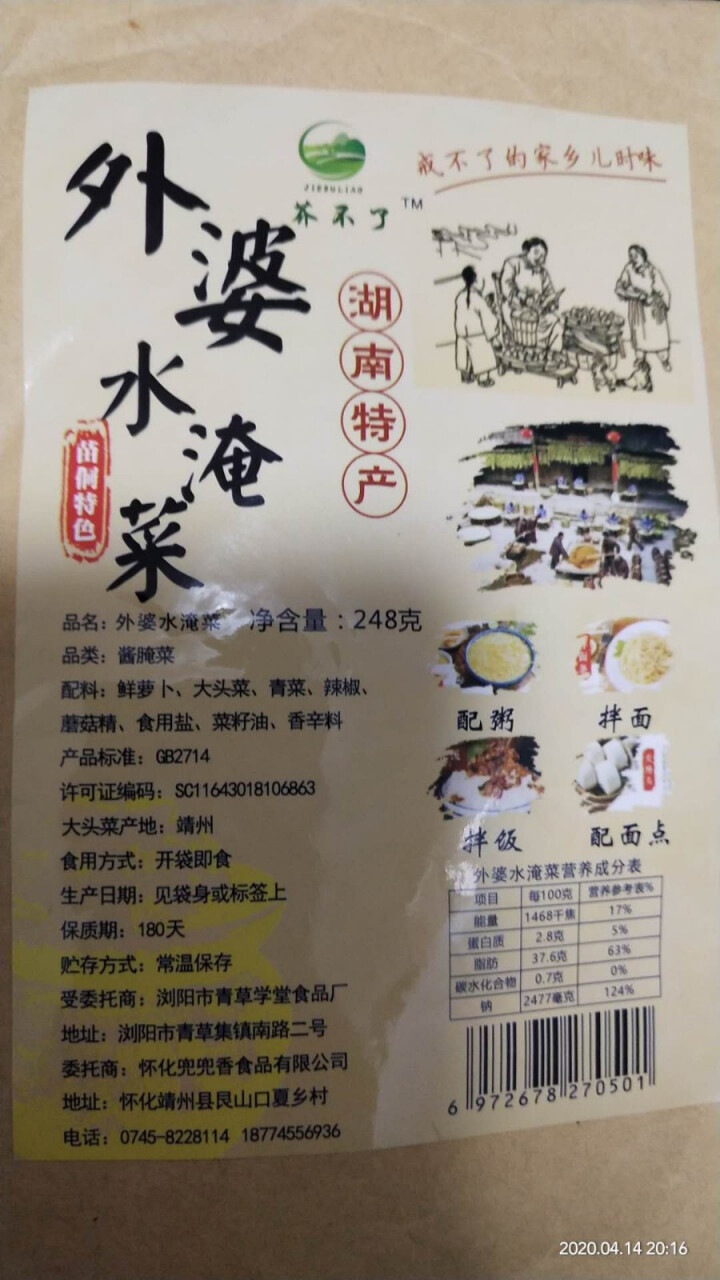 外婆水淹菜
苗侗特色
JIEBULIAO
芥不了™
戒不了的家乡儿时味
湖南特产
品名：外婆水淹菜 净含量：248克
品类：酱腌菜
配料：鲜萝卜、大头菜、青菜、辣椒、
蘑菇精、食用盐、菜籽油、香辛料
产品标准：GB2714
许可证编码：SC11643018106863
大头菜产地：靖州
食用方式：开袋即食
生产日期：见袋身或标签上
保质期：180天
贮存方式：常温保存
受委托商：浏阳市青草学堂食品厂
地址：浏阳市青草集镇南路二号
委托商：怀化兜兜香食品有限公司
地址：怀化靖州县艮山口夏乡村
电话：0745-8228114 18774556936
配粥 拌面
拌饭 配面点
外婆水淹菜营养成分表
项目 每100克 营养参考表%
能量 1468千焦 17%
蛋白质 2.8克 5%
脂肪 37.6克 63%
碳水化合物 0.7克 0%
钠 2477毫克 124%
6 972678 270501
2020.04.14 20:16